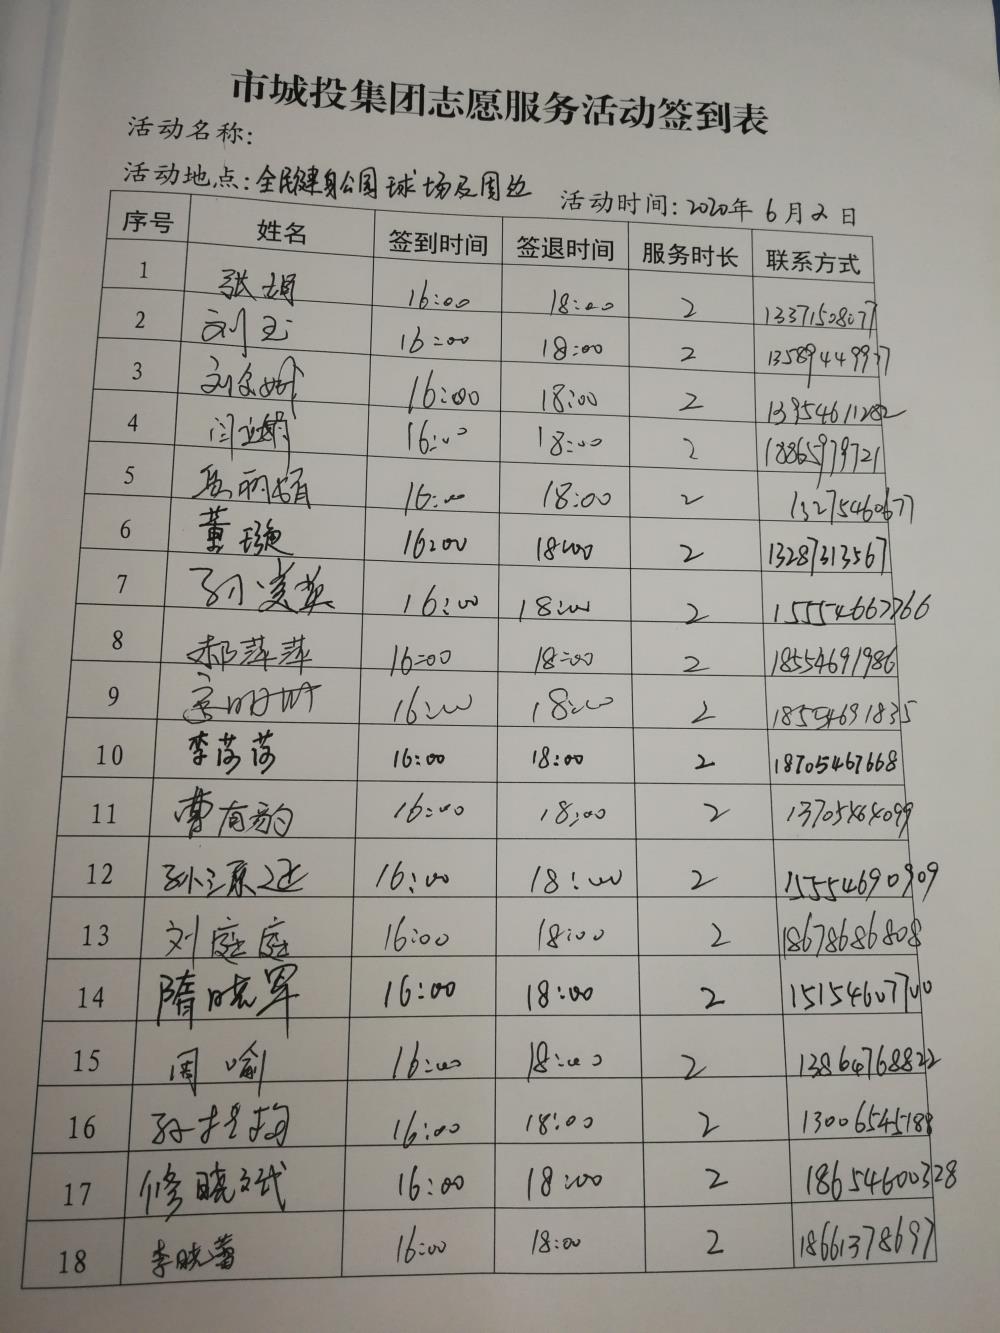 市城投集团志愿服务活动签到表
活动名称:
活动地点:全民健身公园球场及周边 活动时间:2020年6月2日
序号 姓名 签到时间 签退时间 服务时长 联系方式
1 张娟 16:00 18:00 2 13371508071
2 刘玉 16:00 18:00 2 13589449937
3 16:00 18:00 2 13954611282
4 闫亚娟 16:00 18:00 2 18865979721
5 16:00 18:00 2 13275460677
6 董璇 16:00 18:00 2 13287313567
7 孙淩英 16:00 18:00 2 15554667766
8 郝萍萍 16:00 18:00 2 18554691986
9 16:00 18:00 2 18554691835
10 李莎莎 16:00 18:00 2 18705467668
11 曹有韵 16:00 18:00 2 13705464099
12 16:00 18:00 2 15554690909
13 刘庭庭 16:00 18:00 2 18678686808
14 隋晓军 16:00 18:00 2 15154607700
15 周喻 16:00 18:00 2 13864768822
16 16:00 18:00 2 13006545188
17 修晓斌 16:00 18:00 2 18654600328
18 李晓蕾 16:00 18:00 2 18661378697